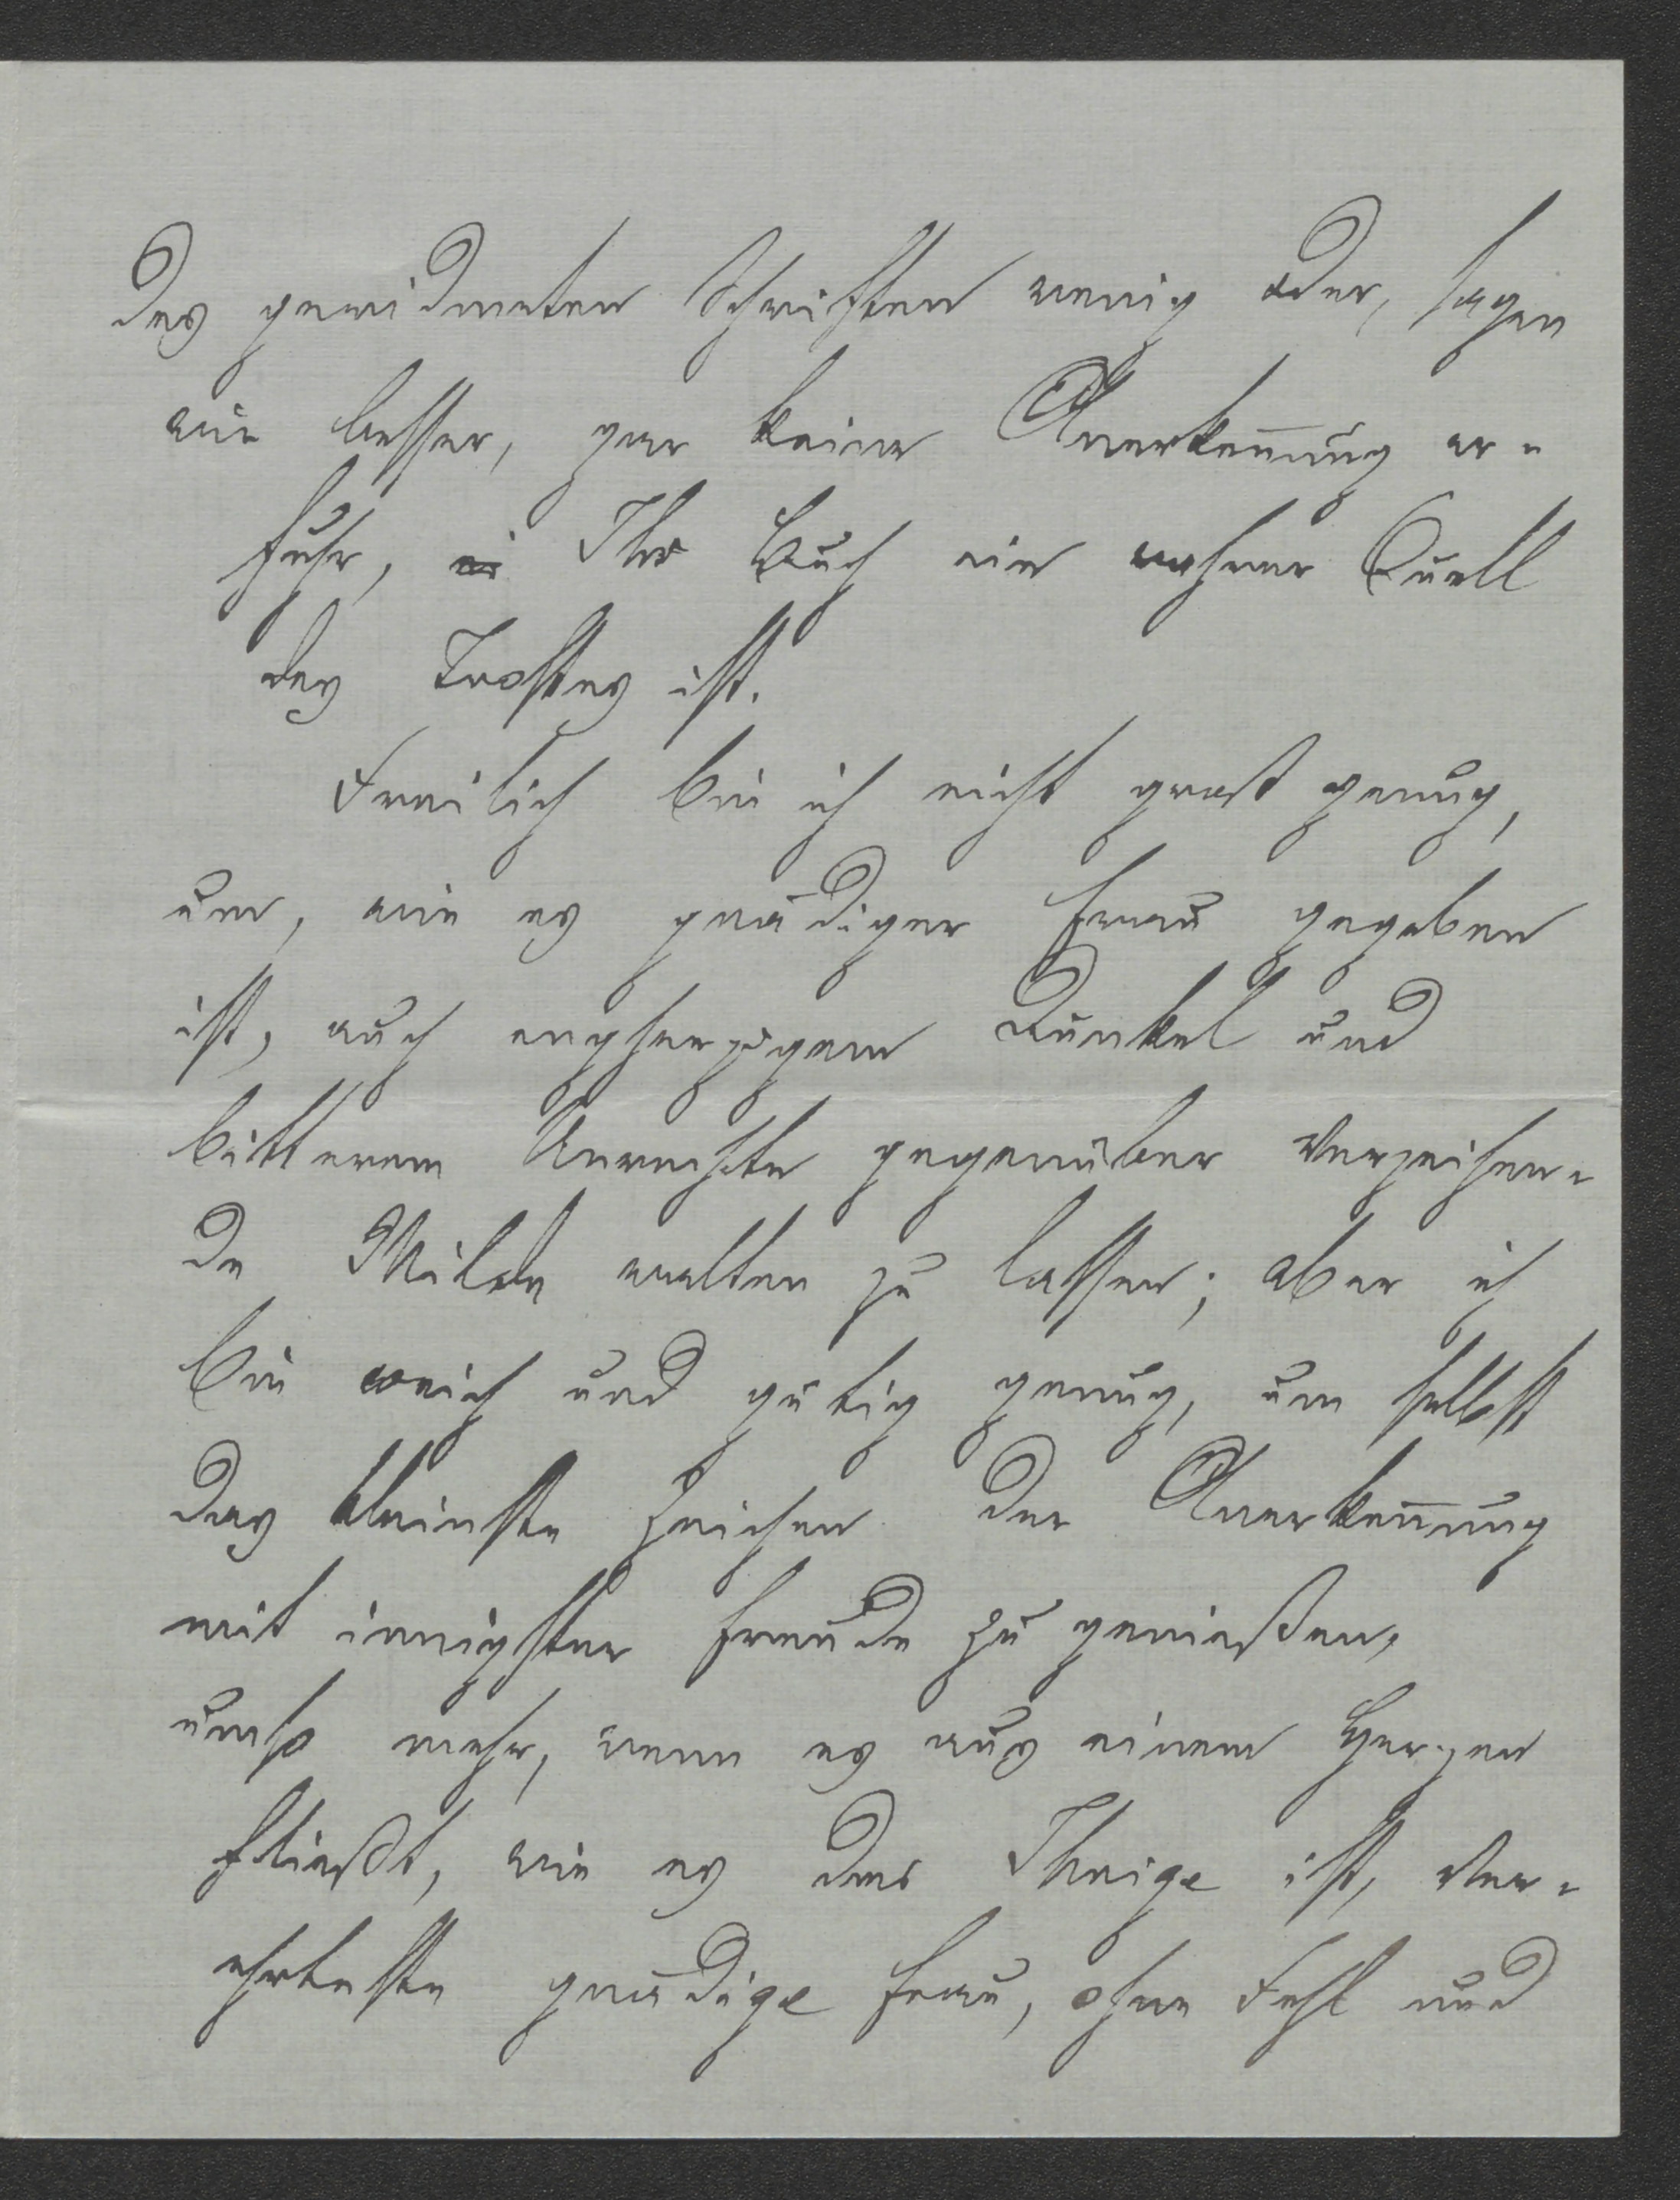 des gewidmeten Schriften wenig oder, sagen
wir besser, gar keine Anerkennung er-
fuhr, Ihr Buch ein wahrer Quell
des Trostes ist.
Freilich bin ich nicht groß genug,
um, wie es gnädiger Frau gegeben
ist, auch engherzigem Dünkel und
bitterem Unrechte gegenüber verzeihen-
de Milde walten zu lassen; aber ich
bin weich und gütig genug, um selbst
das kleinste Zeichen der Anerkennung
mit innigster Freude zu genießen,
umso mehr, wenn es aus einem Herzen
fließt, wie es das Ihrige ist, ver-
ehrteste gnädige Frau, ohne Fehl und